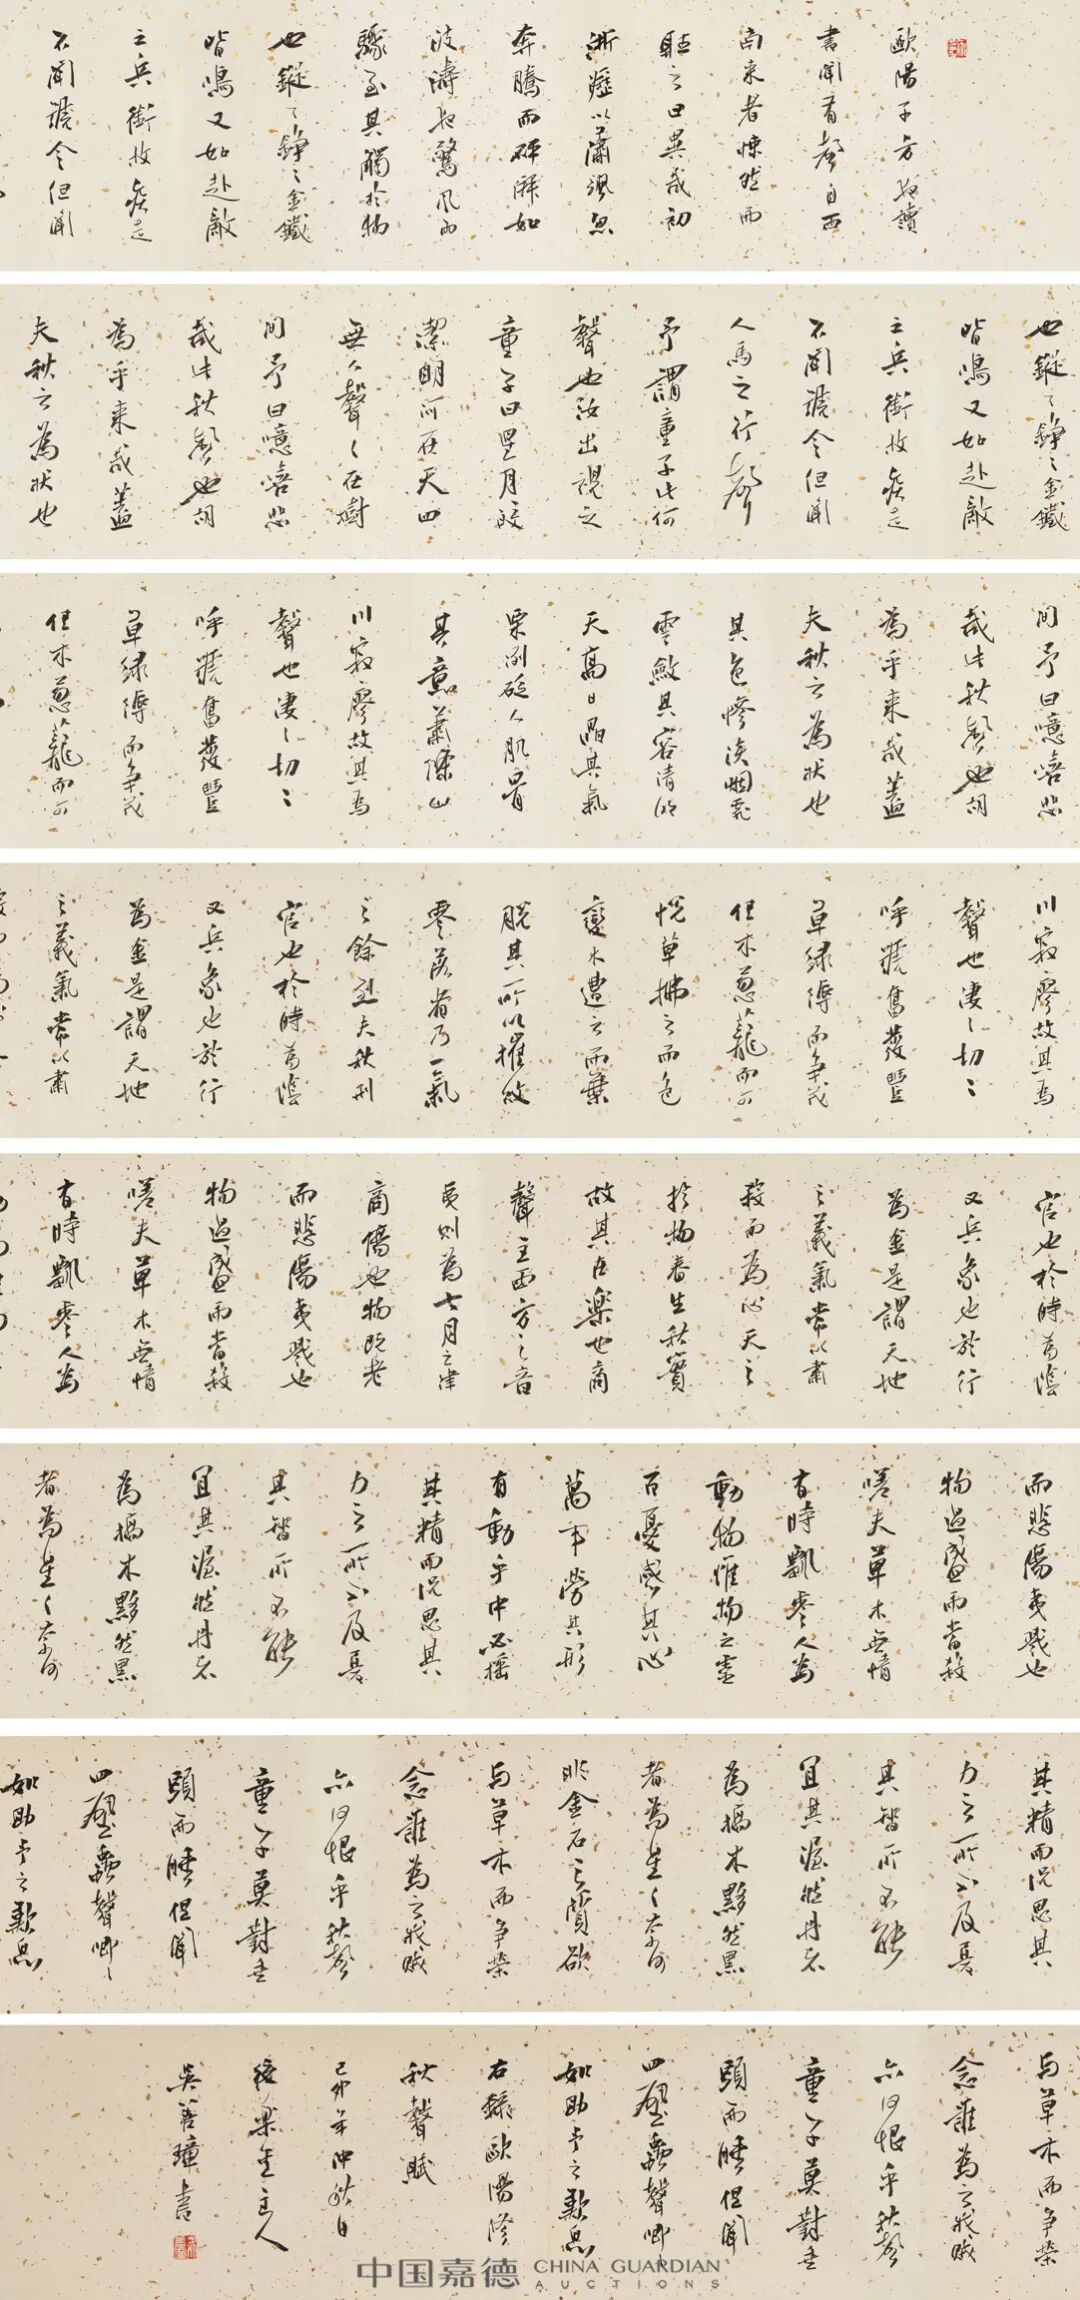 歐陽子方夜讀
書聞有聲自西
南來者悚然而
聽之曰異哉初
淅瀝以瀟颯忽
奔騰而砰湃如
波濤夜驚風雨
驟至其觸於物
也鏦〻錚〻金鐵
皆鳴又如赴敵
之兵銜枚疾走
不聞號令但聞
也鏦〻錚〻金鐵
皆鳴又如赴敵
之兵銜枚疾走
不聞號令但聞
人馬之行聲
予謂童子此何
聲也汝出視之
童子曰星月皎
潔明河在天四
無人聲〻在樹
間予曰噫嘻悲
哉此秋聲也胡
為乎來哉蓋
夫秋之為狀也
間予曰噫嘻悲
哉此秋聲也胡
為乎來哉蓋
夫秋之為狀也
其色慘淡烟霏
雲斂其容清明
天高日晶其氣
栗冽砭人肌骨
其意蕭條山
川寂寥故其為
聲也淒〻切〻
呼號奮發豐
草綠縟而爭茂
佳木蔥蘢而可
川寂寥故其為
聲也淒〻切〻
呼號奮發豐
草綠縟而爭茂
佳木蔥蘢而可
悅草拂之而色
變木遭之而葉
脫其所以摧敗
零落者乃一氣
之餘烈夫秋刑
官也於時為陰
又兵象也於行
為金是謂天地
之義氣常以肅
官也於時為陰
又兵象也於行
為金是謂天地
之義氣常以肅
殺而為心天之
於物春生秋實
故其在樂也商
聲主西方之音
夷則為七月之律
商傷也物既老
而悲傷夷戮也
物過盛而當殺
嗟夫草木無情
有時飄零人為
而悲傷夷戮也
物過盛而當殺
嗟夫草木無情
有時飄零人為
動物惟物之靈
百憂感其心
萬事勞其形
有動乎中必搖
其精而況思其
力之所不及憂
其智所不能
宜其渥然丹者
為槁木黟然黑
者為星〻奈何
其精而況思其
力之所不及憂
其智所不能
宜其渥然丹者
為槁木黟然黑
者為星〻奈何
非金石之質欲
與草木而爭榮
念誰為之戕賊
亦何恨乎秋聲
童子莫對垂
頭而睡但聞
四壁蟲聲唧〻
如助予之歎息
與草木而爭榮
念誰為之戕賊
亦何恨乎秋聲
童子莫對垂
頭而睡但聞
四壁蟲聲唧〻
如助予之歎息
右錄歐陽修
秋聲賦
己卯年仲秋日
後樂堂主人
吳善璋書
中国嘉德 CHINA GUARDIAN
AUCTIONS